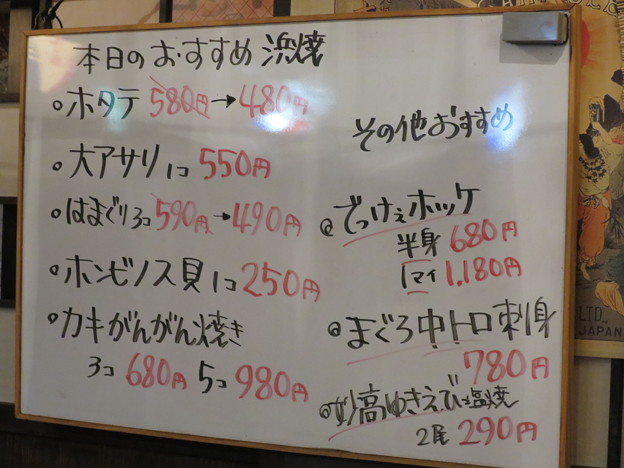 本日のおすすめ 浜焼
ホタテ 580円→480円
大アサリ 1コ 550円
はまぐり3コ 590円→490円
ホンビノス貝 1コ 250円
カキがんがん焼き
3コ 680円 5コ 980円
その他おすすめ
でっけぇホッケ
半身 680円
1マイ 1,180円
まぐろ中トロ刺身
780円
妙高ゆきえび塩焼
2尾 290円
LTD.,
JAPAN